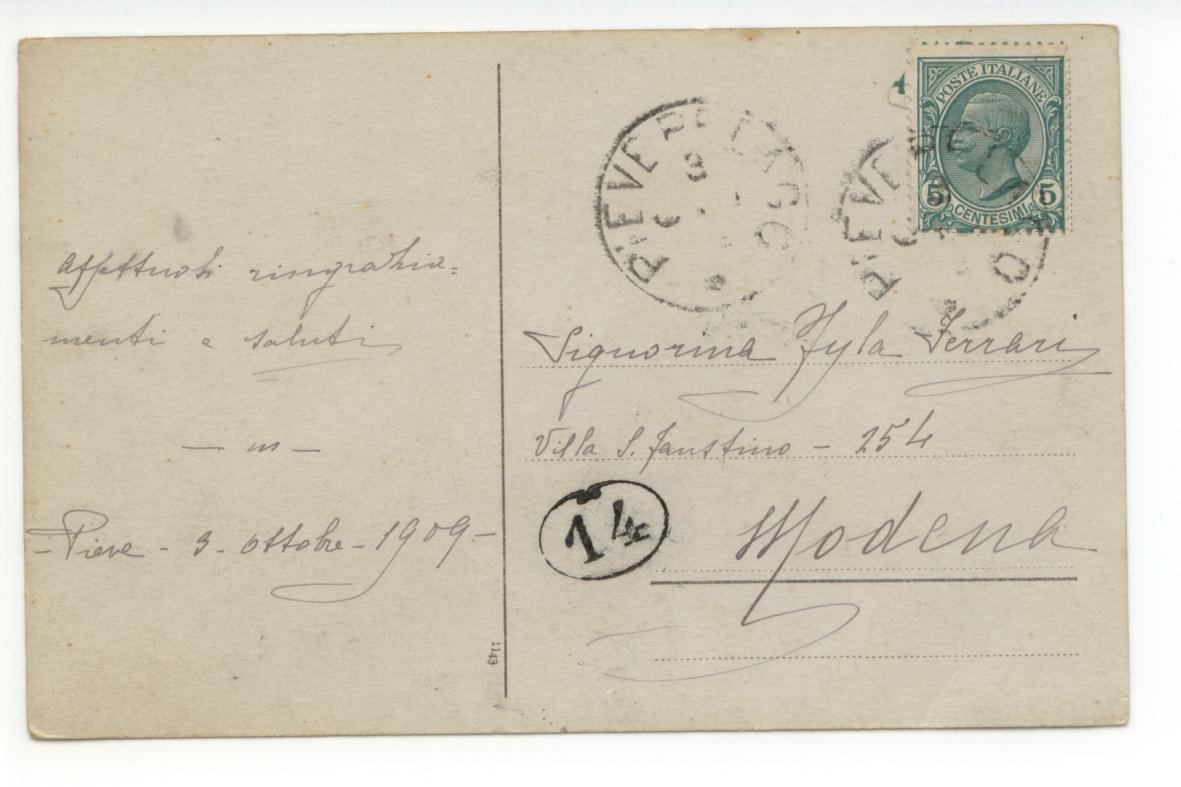 Affettuosi ringrazia=
menti e saluti
— m —
- Pieve - 3 - ottobre - 1909 -
1143
PIEVE PELAGO
3
PIEVE PELAGO
POSTE ITALIANE
5 5
CENTESIMI
Signorina Jyla Ferrari
Villa S. Faustino - 254
14
Modena